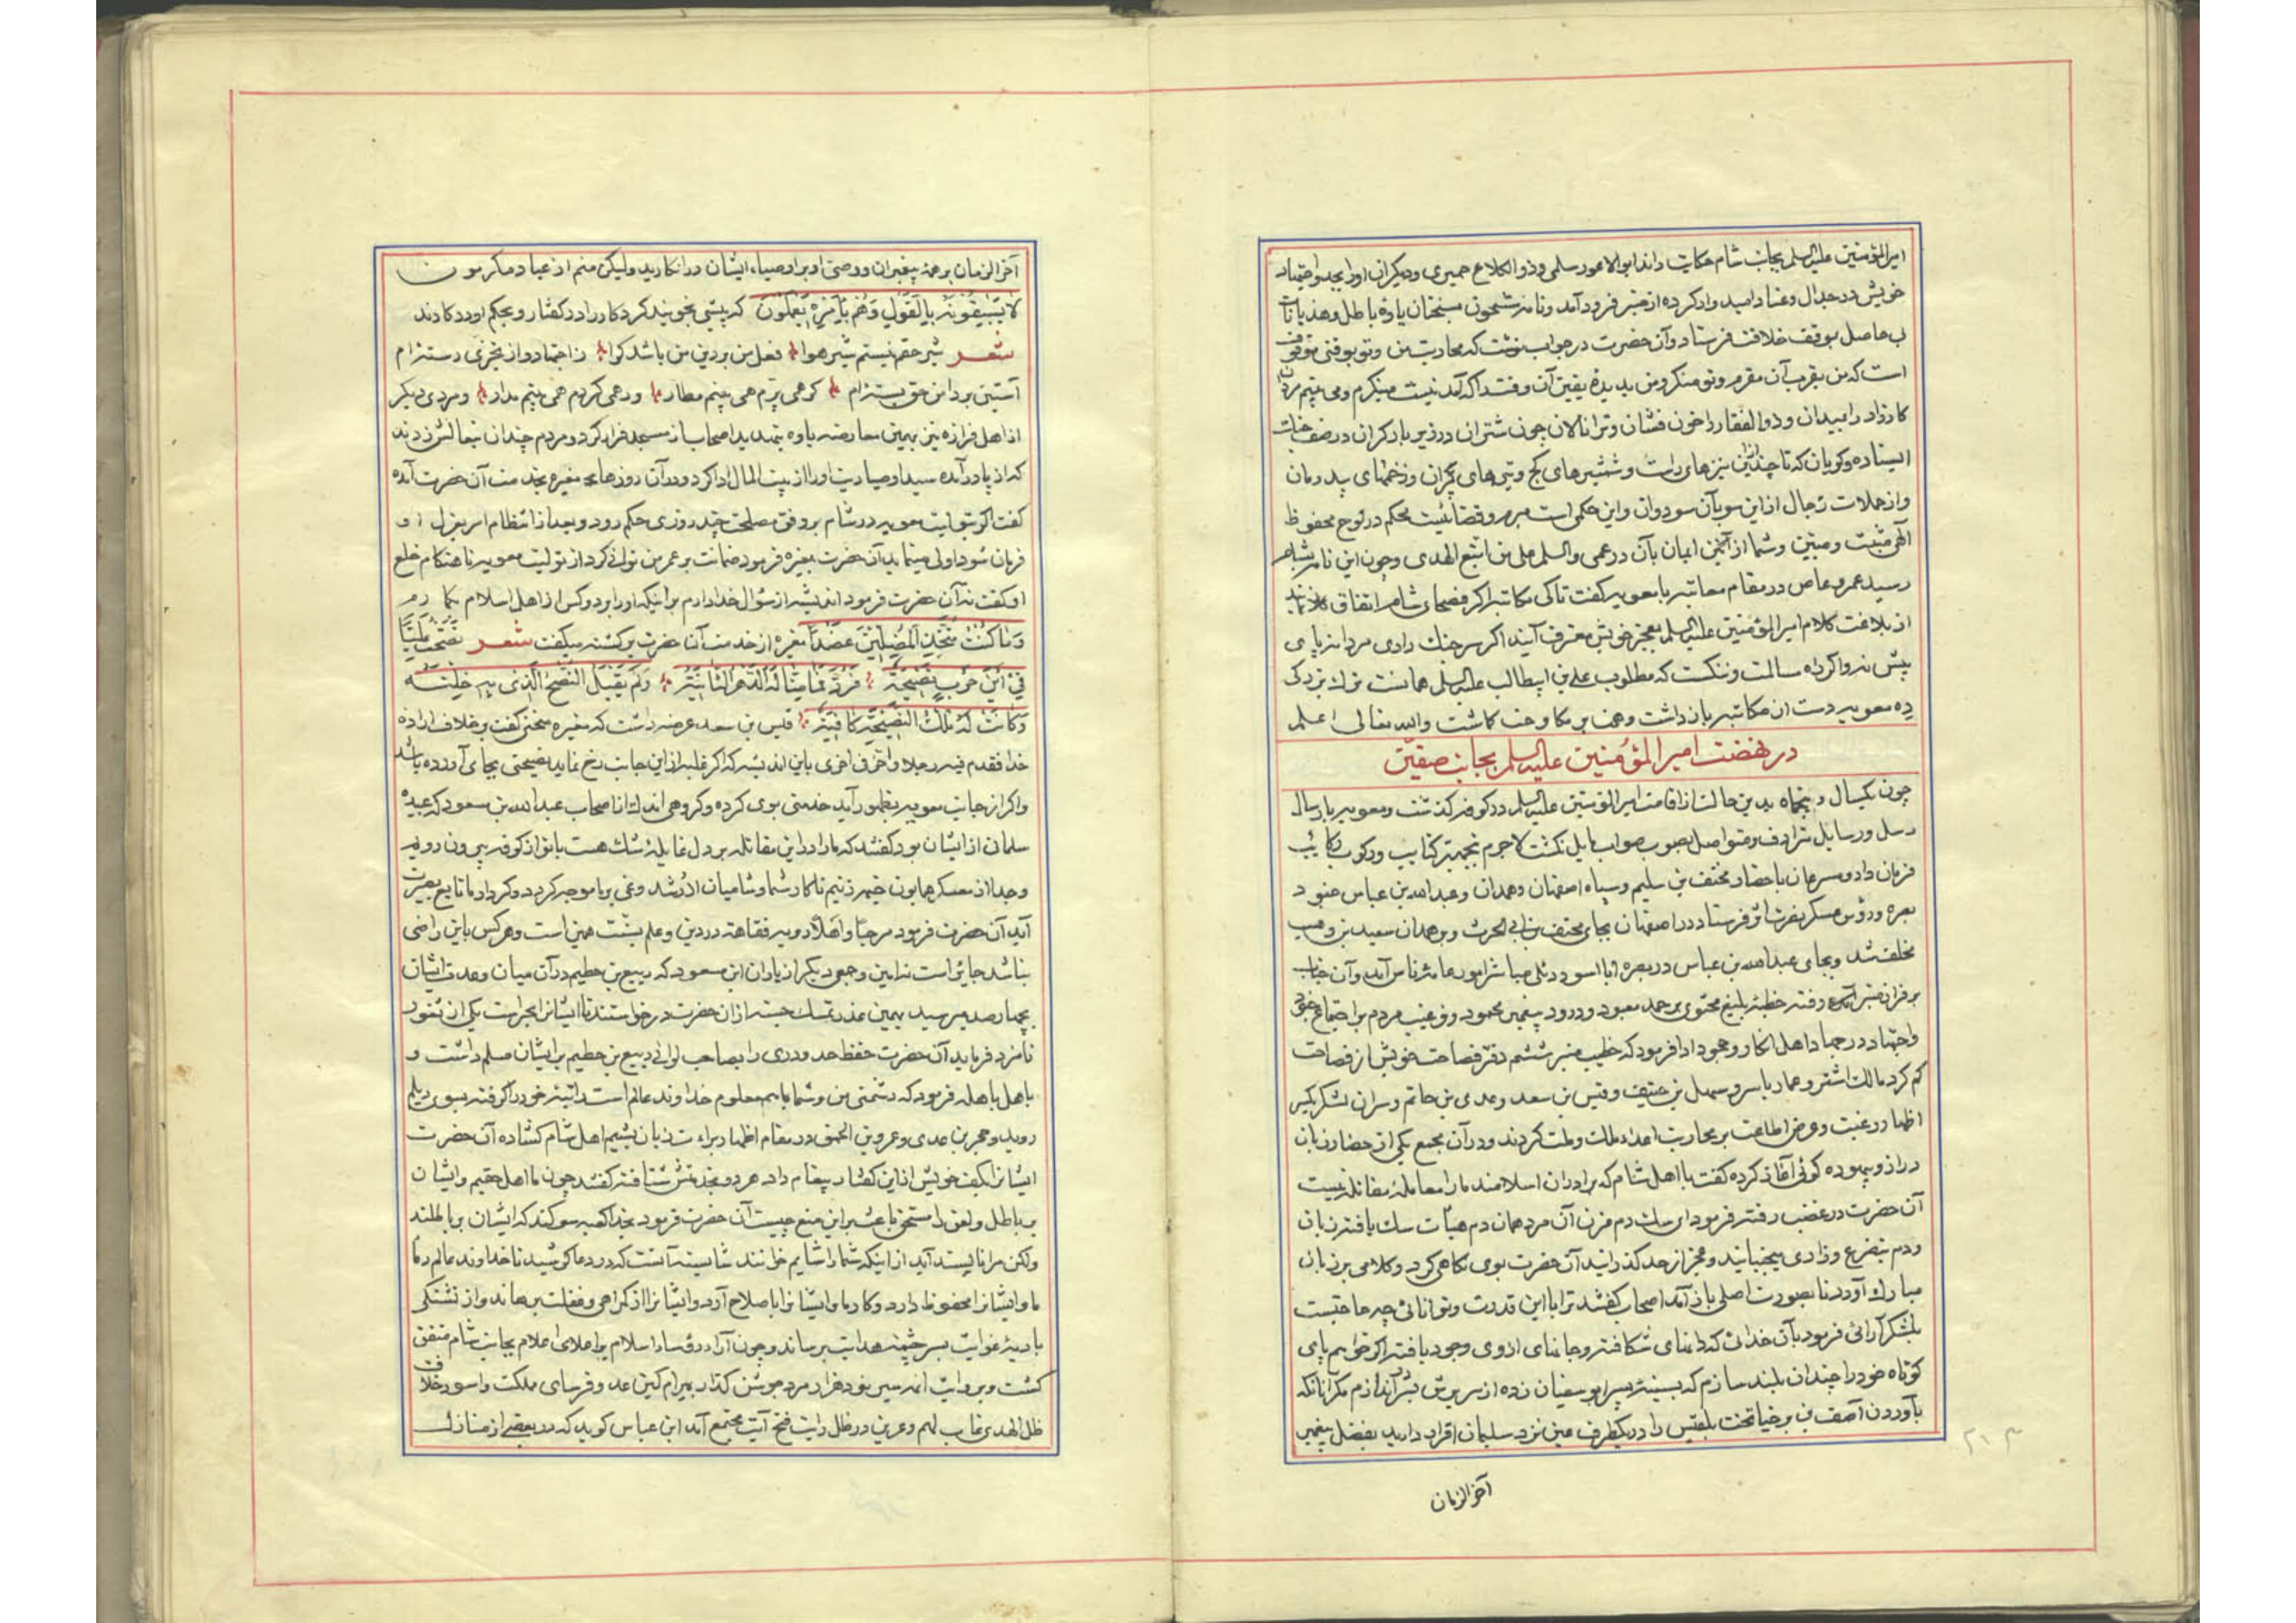 امیرالمؤمنین علیه السلم بجانب شام حکایت راند ابوالاعور سلمی و ذوالکلاع حمیری و دیکران او را بجد و اجتهاد
خویش در جدال و عناد امیدوار کرده از منبر فرود آمد و نامه مشحون بسخنان یاوه باطل و هذیانات
بی حاصل بموقف خلافت فرستاد و آن حضرت در جواب نوشت که محاربت من و تو بوقتی موقوف
است که من بقرب آن مقرم و تو منکر و من بدیده یقین آن وقت را که آمدنیست مینکرم و می بینم مردان
کارزار را بمیدان و ذوالفقار را خون فشان و ترا نالان چون شتران در زیر بار کران در صف
ایستاده و کویان که تا چند ازین نیزهای راست و شمشیرهای کج و تیرهای پران و زخمهای بیدرمان
و از حملات رجال از این سو بآن سو دوان و این حکمی است مبرم و قضائیست محکم در لوح محفوظ
الهی مثبت و مبین و شما از ایمان بآن در عمی والسلم علی من اتبع الهدی و چون این نامه بشام
رسید عمرو عاص در مقام معاتبه با معویه کفت تا کی مکاتبه اکر فصحای شام اتفاق
از بلاغت کلام امیرالمؤمنین علیه السلم بعجز خویش معترف آیند اکر سر جنك داری مردانه پای
پیش نه و اکر راه سالمت و ننکست که مطلوب علی بن ابیطالب علیه السلم همانست ترك بزرکی
ده معویه دست از مکاتبه باز داشت و همت بر مکاوحت کاشت والله تعالی اعلم
در نهضت امیر المؤمنین علیه السلم بجانب صفین
چون یکسال و پنجماه بدین حالت از اقامت امیرالمؤمنین علیه السلم در کوفه کذشت و معویه بارسال
رسل و رسایل مترادف و متواصل بصوب صواب مایل نکشت لاجرم بتجهیز کتایب و رکوب رکائب
فرمان داد و مسرعان باحضار مخنف بن سلیم و سپاه اصفهان و همدان و عبدالله بن عباس و جنود
بصره و رؤس عسکر نصرت اثر فرستاد در اصفهان بجای مخنف بن ابی الحرث و بر همدان سعید بن وهب
مخلف شد و بجای عبدالله بن عباس در بصره ابا اسود دئلی مباشر امور عامه ناس آمد و آن جناب
بر فراز منبر رفته خطبه بلیغ محتوی بر حمد معبود و درود پیغمبر محمود و ترغیب مردم بر اجتماع جنود
و اجتهاد در جهاد اهل انکار و جحود ادا فرمود که خطیب منبر ششم دفتر فصاحت خویش از فصاحت
کم کرد مالك اشتر و عمار یاسر و سهل بن حنیف و قیس بن سعد و عدی بن حاتم و سران لشکر یکسر
اظهار رغبت و عرض اطاعت بر محاربت اعداء ملك و ملت کردند و در آن مجمع یکی از حضار زبان
دراز و بیهوده کوئی آغاز کرده کفت با اهل شام که برادران اسلامند ما را معامله مقاتله نیست
آن حضرت در غضب رفته فرمود ای سك دم مزن آن مرد همان دم هیأت سك یافته زبان
و دم بتضرع و زاری میجنبانید و عجز از حد کذرانید آن حضرت بوی نکاهی کرد و کلامی بر زبان
مبارك آورد تا بصورت اصلی باز آمد اصحاب کفتند ترا با این قدرت و توانائی چه حاجتست
بلشکر آرائی فرمود بآن خدائی که دانهای شکافته و جانهای از وی وجود یافته اکر خواهم پای
کوتاه خود را چندان بلند سازم که بسینه پسر ابوسفیان زده از سریرش بزیر اندازم مکر آنانکه
بآوردن آصف بن برخیا تخت بلقیس را در یکطرف عین نزد سلیمان اقرار دارید بفضل پیغمبر
آخرالزمان
۲۱۳
آخرالزمان بر همه پیغمبران و وصی او بر اوصیاء ایشان در انکارید ولیکن منم از عباد مکرمون
لا یسبقونه بالقول و هم بامره یعملون که پیشی نجویند کردکار را در کفتار و بحکم او در کارند
شعر شیر حقم نیستم شیر هوا فعل من بر دین من باشد کوا ز اجتهاد و از تحری رسته ام
آستین بر دامن حق بسته ام کر همی پرم همی بینم مطار ور همی کردم همی بینم مدار و مردی دیکر
از اهل فزاره نیز بهمین معارضه یاوه بتهدید اصحاب از مسجد فرار کرد و مردم چندان نعالش زدند
که از پا درآمده سید اوصیا دیت او را از بیت المال ادا کرد و در آن روزها مغیره بخدمت آن حضرت آمده
کفت اکر تولیت معویه در شام بر وفق مصلحت چند روزی حکم رود و بعد از انتظام امر بعزل او
فرمان شود اولی مینماید آن حضرت بمغیره فرمود ضمانت بر عمر من توانی کرد از تولیت معویه تا هنکام خلع
او کفت نه آن حضرت فرمود اندیشه از سؤال خدا دارم بر اینکه او را بر دو کس از اهل اسلام کمارم
و ما کنت متخذ المضلین عضدا مغیره از خدمت آن حضرت برکشته میکفت شعر نصحت علیا
فی ابن حرب نصیحة فرد فما منا له الدهر ثانیه و لم یقبل النصح الذی جئته
و کانت له تلك النصیحة کافیه قیس بن سعد عرضه داشت که مغیره سخنی کفت بر خلاف اراده
خدا فقدم فیه رجلا و اخر فی اخری باین اندیشه که اکر غلبه از این جانب رخ نماید نصیحتی بجای آورده باشد
و اکر از جانب معویه بظهور آید خدمتی بوی کرده و کروهی اندك از اصحاب عبدالله بن مسعود که عبیده
سلمانی از ایشان بود کفتند که ما را در این مقاتله بر دل غایله شك هست با تو از کوفه بیرون رویم
و جدا از معسکر همایون خیمه زنیم تا کار شما و شامیان از رشد و غی بر ما موجه کردد و کردار ما تابع بصیرت
آید آن حضرت فرمود مرحبا و اهلا رویه فقاهت در دین و علم بسنت همین است و هر کس باین راضی
نباشد جائر است نه امین و جمعی دیکر از یاران ابن مسعود که ربیع بن خثیم در آن میان و عدت ایشان
بچهارصد میرسید بهمین عذر تمسك جسته از آن حضرت درخواستند تا ایشانرا بحراست یکی از ثغور
نامزد فرماید آن حضرت حفظ حدود ری را بصاحب لوائی ربیع بن خثیم بر ایشان مسلم داشت و
باهل باهله فرمود که دشمنی من و شما با هم معلوم خداوند عالم است راتبه خود را کرفته بسوی دیلم
روید و حجر بن عدی و عمرو بن الحمق در مقام اظهار براءت زبان بشتم اهل شام کشاده آن حضرت
ایشانرا بکف خویش از این کفتار پیغام داد هر دو بخدمتش شتافته کفتند چون ما اهل حقیم و ایشان
بر باطل و لعن را مستحق باعث بر این منع چیست آن حضرت فرمود بخدا کعبه سوکند که ایشان بر باطلند
ولکن مرا ناپسند آید از اینکه شما را شاتم خوانند شایسته آنست که در دعا کوشید تا خداوند عالم دماء
ما و ایشانرا محفوظ دارد و کار ما و ایشانرا باصلاح آرد و ایشانرا از کمراهی و غفلت برهاند و از تشنکی
بادیه غوایت بسرچشمه هدایت برساند و چون آراء رؤساء اسلام بر اعلای اعلام بجانب شام متفق
کشت و بروایت نود هزار مرد جوشن کذار
ظل الهدی در ظل رایت فتح آیت مجتمع آمد ابن عباس کوید که در بعضی از منازل